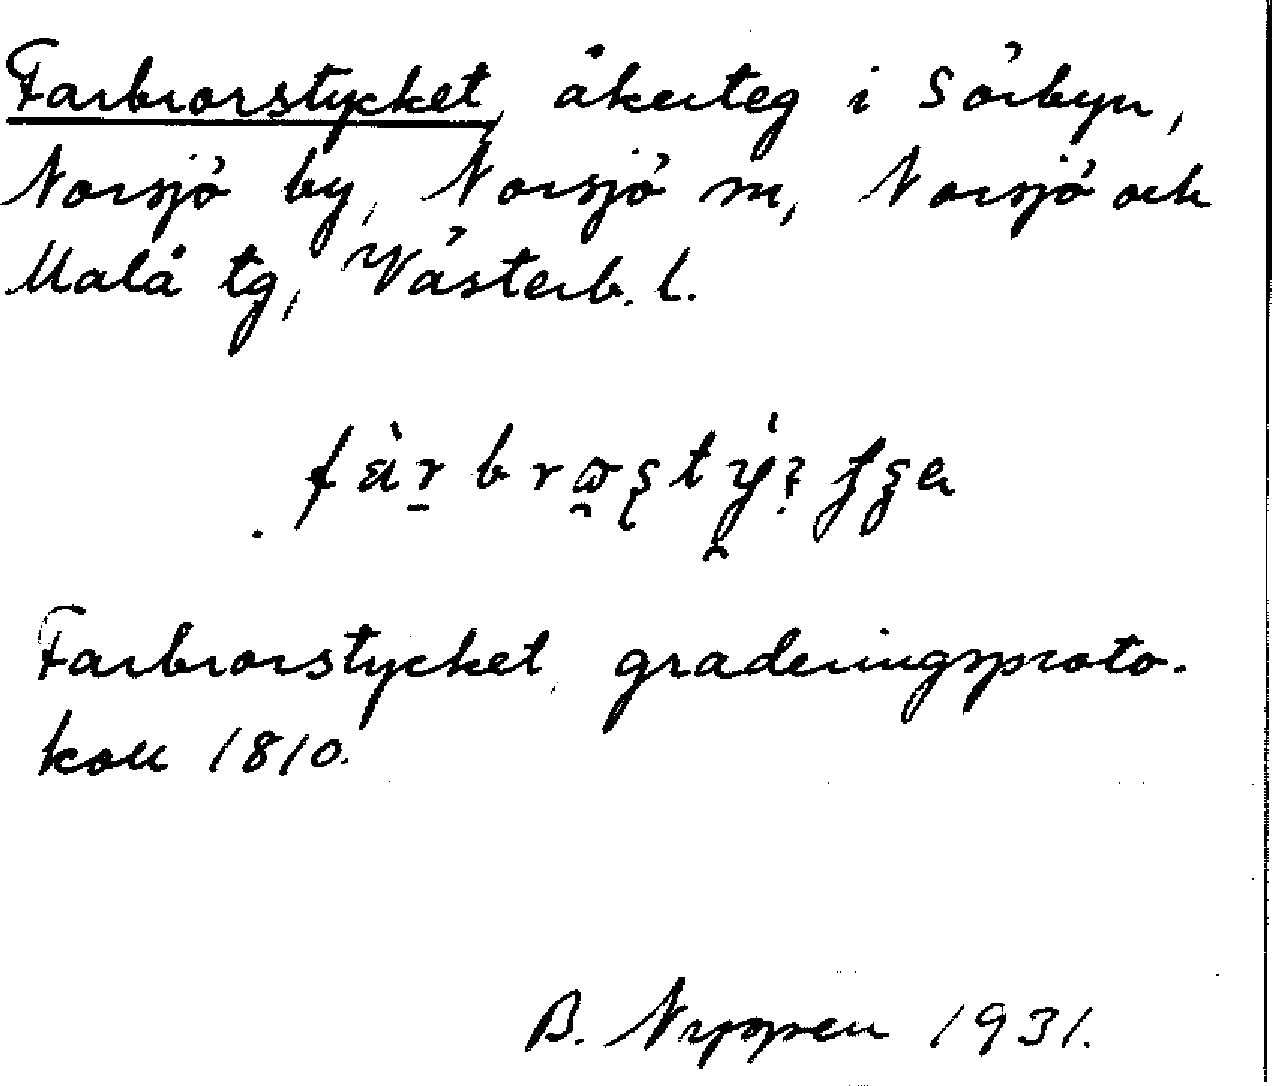 Farbrorstycket, åkerteg i Sörbyn,
Norsjö by, Norsjö sn, Norsjö och
Malå tg, Västerb. l.
Farbrorstycket, graderingsproto-
koll 1810.
B. 1931.